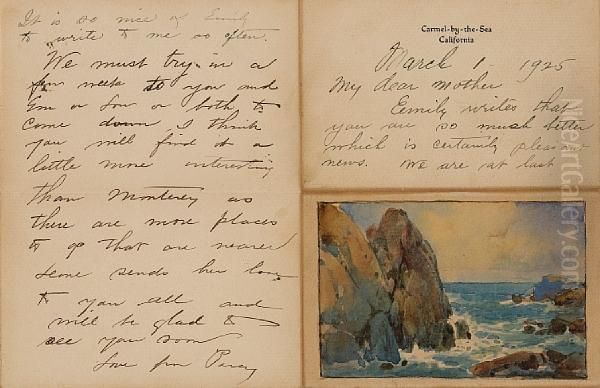 Carmel-by-the-Sea
California
March 1 - 1925
My dear Mother
Eemily writes that
you are so much better
which is certainly pleasant
news. We are at last
It is so nice of Emily
to write to me so often.
We must try in a
few weeks to you and
Em or Lou or both to
come down, I think
you will find it a
little more interesting
than Monterey as
there are more places
to go that are nearer
sends her love
to you all and
will be glad to
see you soon
Love from Percy
NiceArtGallery.com